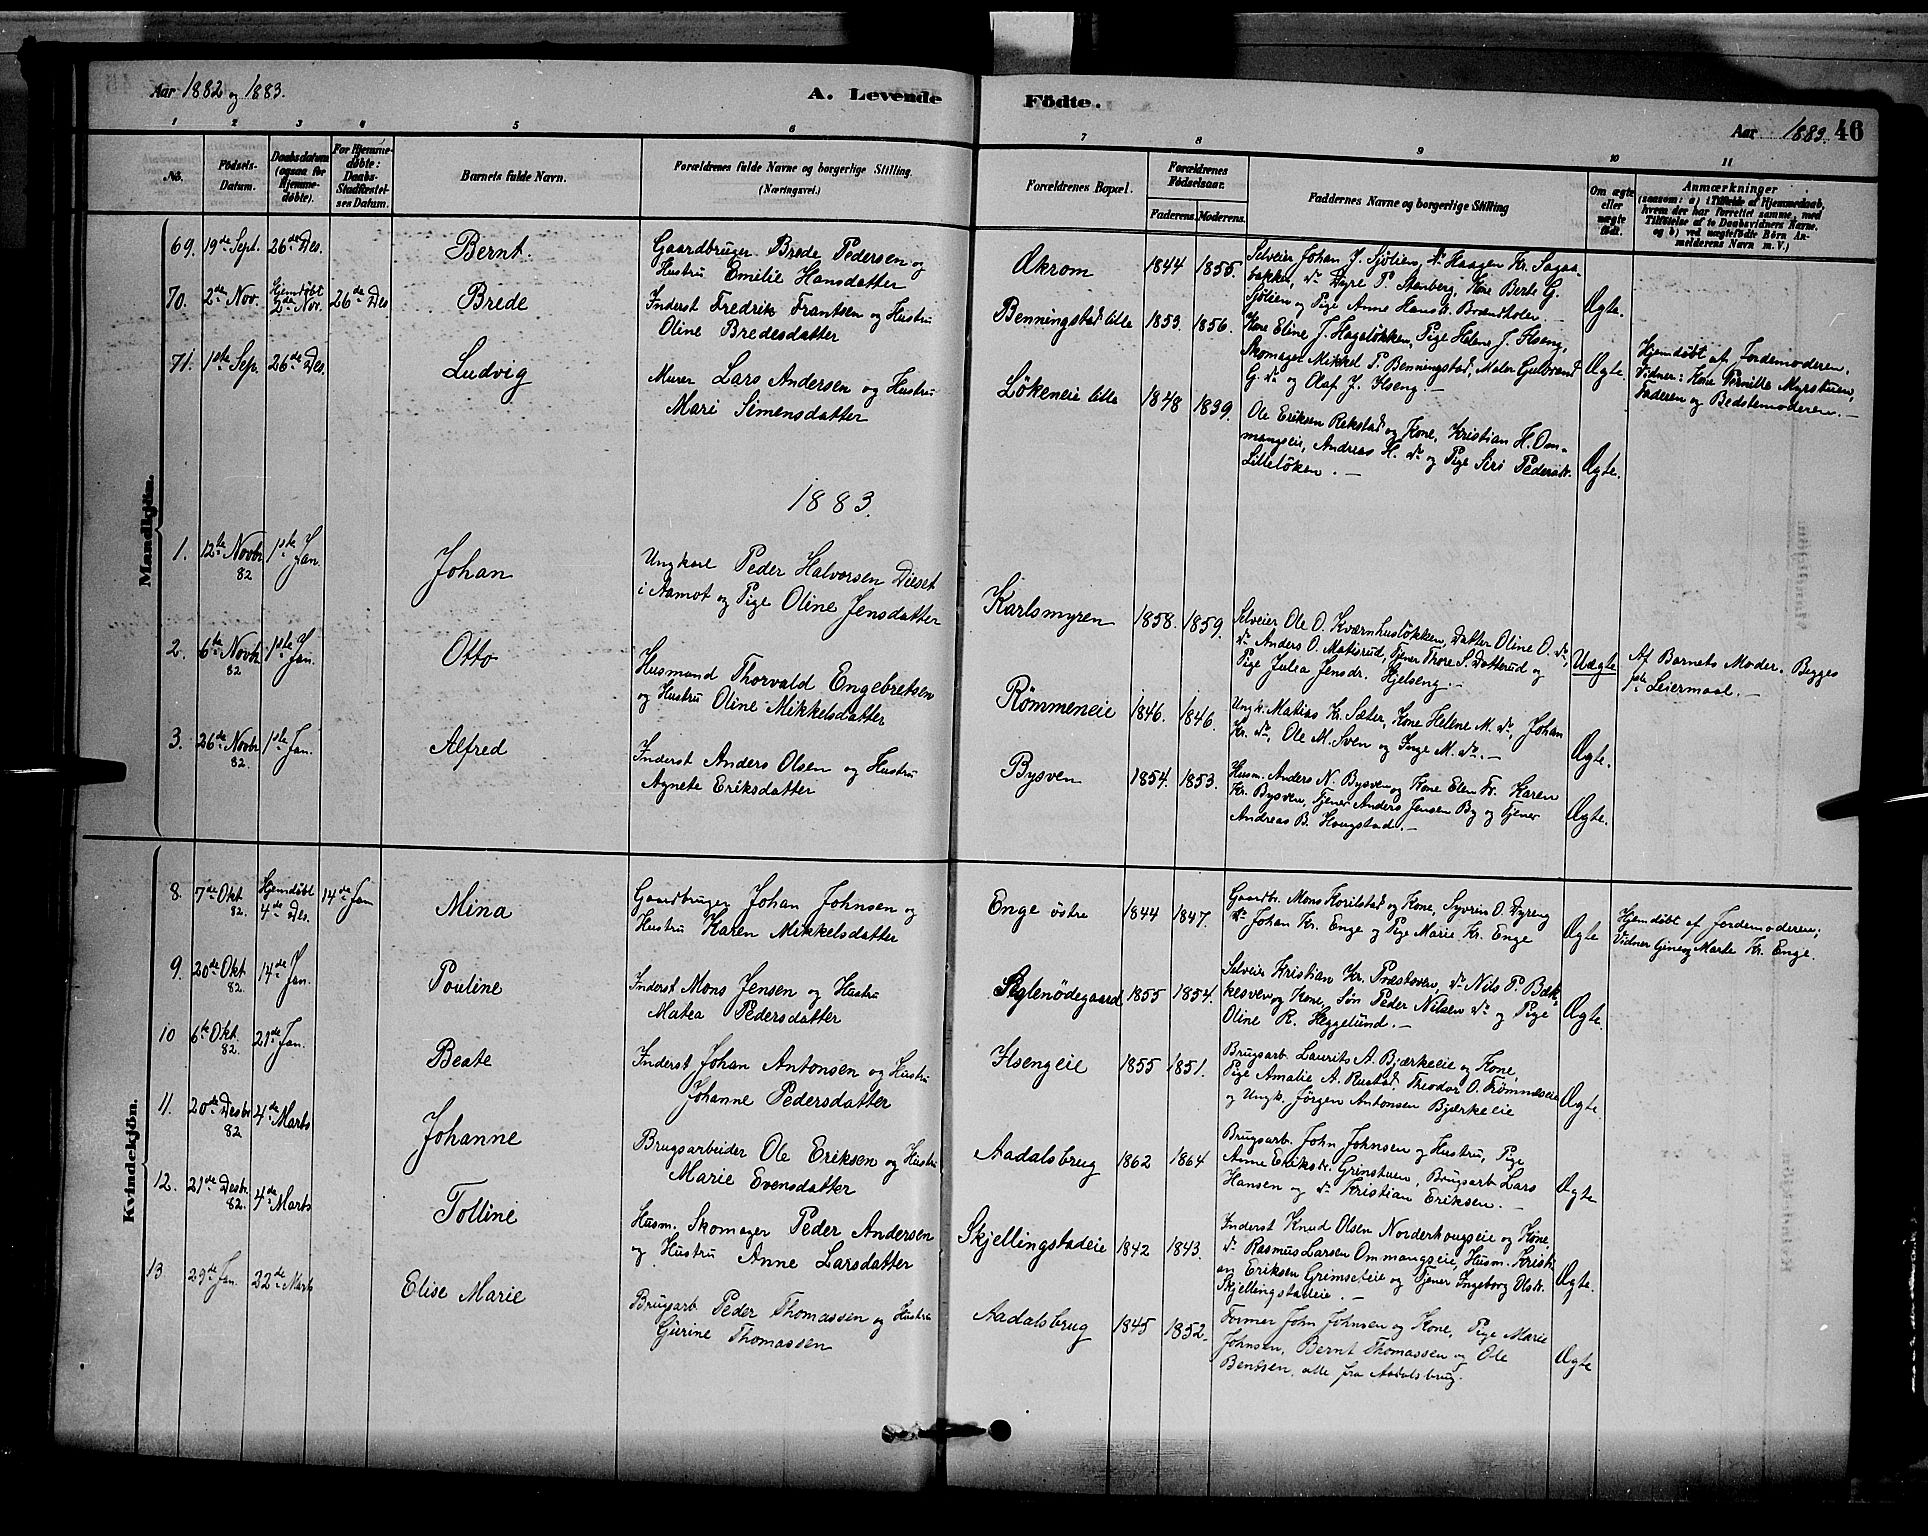 Aar 1882 og 1883.
A. Levende Födte.
Aar 1883. 46
1 2 3 4 5 6 7 8 9 10 11
No.
Födsels-
Datum.
Daabsdatum
(ogsaa for
Hjemme-
döbte).
For Hjemme-
döbte:
Daabs-
Stadfæstel-
ses Datum.
Barnets fulde Navn.
Forældrenes fulde Navne og borgerlige Stilling.
(Næringsvei.)
Forældrenes Bopæl.
Forældrenes
Födselsaar.
Faderens. Moderens.
Faddernes Navne og borgerlige Stilling
Om ægte
eller
uægte
födt.
Anmærkninger
(saasom: a) i Tilfælde af Hjemmedaab,
hvem der har forrettet samme, med
Tilföielse af to Daabsvidners Navne,
og b) ved uægtefödte Börn An-
melderens Navn m. V.)
Mandkjön.
69. 19de Sept. 26de Des. Bernt.
Gaardbruger Brede Pedersen og
Hustru Emilie Hansdatter
Økrom 1844 1855.
Selveier Johan J. Sjölien, do Haagen Kr. Sagaa-
bakke, do Dyre P. Stenberg, Kone Berte G.
Sjölien og Pige Anne Hansdr. Brændholen —
Ægte.
70. 2de Nov. Hjemdöbt
2de Nov. 26de Des Brede
Inderst Fredrik Frantsen og Hustru
Oline Bredesdatter
Benningstad lille 1853. 1856.
Kone Eline J. Hagelökken, Pige Helene J. Ilseng,
Skomager Mikkel P. Benningstad, Maler Gulbrand
G. do og Olaf J. Ilseng. —
Ægte.
Hjemdöbt af Jordemoderen.
Vidner: Kone Pernille Myrstuen,
Faderen og Bedstemoderen. —
71. 1ste Sep. 26de Des. Ludvig
Murer Lars Andersen og Hustru
Mari Simensdatter
Lökeneie lille 1848 1839.
Ole Eriksen Rekstad og Kone, Kristian H. Om-
mangseie, Andreas H. do og Pige Siri Pedersdr.
Lillelöken. —
Ægte.
1883.
1. 12te Novbr 82 1ste Jan. Johan
Ungkarl Peder Halvorsen Dieset
i Aamot og Pige Oline Jensdatter
Karlsmyren 1858. 1859.
Selveier Ole O. Kværnhuslökken, Datter Oline O. do,
do Anders O. Matisrud, Tjener Thore S. Dotterud og
Pige Julea Jensdr. Hjelseng. —
Uægte
Af Barnets Moder. Begges
1ste Leiermaal. —
2. 6te Novbr 82 1ste Jan. Otto
Husmand Thorvald Engebretsen
og Hustru Oline Mikkelsdatter
Römmeneie 1846. 1846.
Ungk. Matias Kr. Sæter, Kone Helene M. do, Johan
Kr. do, Ole M. Sven og Inge M. do. —
Ægte.
3. 26de Novbr 82. 1ste Jan. Alfred
Inderst Anders Olsen og Hustru
Agnete Eriksdatter
Bysven 1854. 1853.
Husm. Anders N. Bysven og Kone Elen Fr. Karen
Kr. Bysven, Tjener Anders Jensen By og Tjener
Andreas B. Hougstad. —
Ægte.
Kvindekjön.
8. 7de Okt 82. Hjemdöbt
4de Des. 14de Jan Mina
Gaardbruger Johan Johnsen og
Hustru Karen Mikkelsdatter
Enge östre 1844 1847.
Gaardbr. Mons Horilstad og Kone, Syverin O. Dyreng
do Johan Kr. Enge og Pige Marie Kr. Enge
Ægte
Hjemdöbt af Jordemoderen;
Vidner Gine og Marte Kr. Enge.
9. 20de Okt 82. 14de Jan. Pouline
Inderst Mons Jensen og Hustru
Matea Pedersdatter
Seglenödegaard 1855 1854.
Selveier Kristian Kr. Præstsven, do Nils P. Bæk-
kesven og Kone, Sön Peder Nilsen do og Pige
Oline R. Heggelund. —
Ægte.
10 6te Okt. 82. 21de Jan. Beate
Inderst Johan Antonsen og Hustru
Johanne Pedersdatter
Ilsengeie 1855 1851.
Brugsarb. Laurits A. Bjærkeeie og Kone,
Pige Amalie A. Rustad, Treodor O. Trömneseie
og Ungk. Jörgen Antonsen Bjærkeeie
Ægte
11. 20de Desbr 82 4de Marts Johanne
Brugsarbeider Ole Eriksen og Hustru
Marie Evensdatter
Aadalsbrug 1862 1864
Brugsarb. John Johnsen og Hustru, Pige
Anne Eriksdr. Grinstuen, Brugsarb Lars
Hansen og do Kristian Eriksen. —
Ægte
12. 21de Desbr. 82. 4de Marts Tolline
Husm. Skomager Peder Andersen
og Hustru Anne Larsdatter
Skjellingstadeie 1842 1843.
Inderst Knud Olsen Norderhougseie og Kone
do Rasmus Larsen Ommangseie, Husm. Kristi-
an Eriksen Grimseteie og Tjener Ingeborg Olsdr.
Skjellingstadeie. —
Ægte.
13 29de Jan. 22de Marts Elise Marie
Brugsarb Peder Thomassen og Hustru
Gurine Thomassen
Aadalsbrug 1845 1852.
Former John Johnsen og Kone, Pige Marie
Johnsen, Bernt Thomassen og Ole
Bentsen, alle fra Aadalsbrug.
Ægte